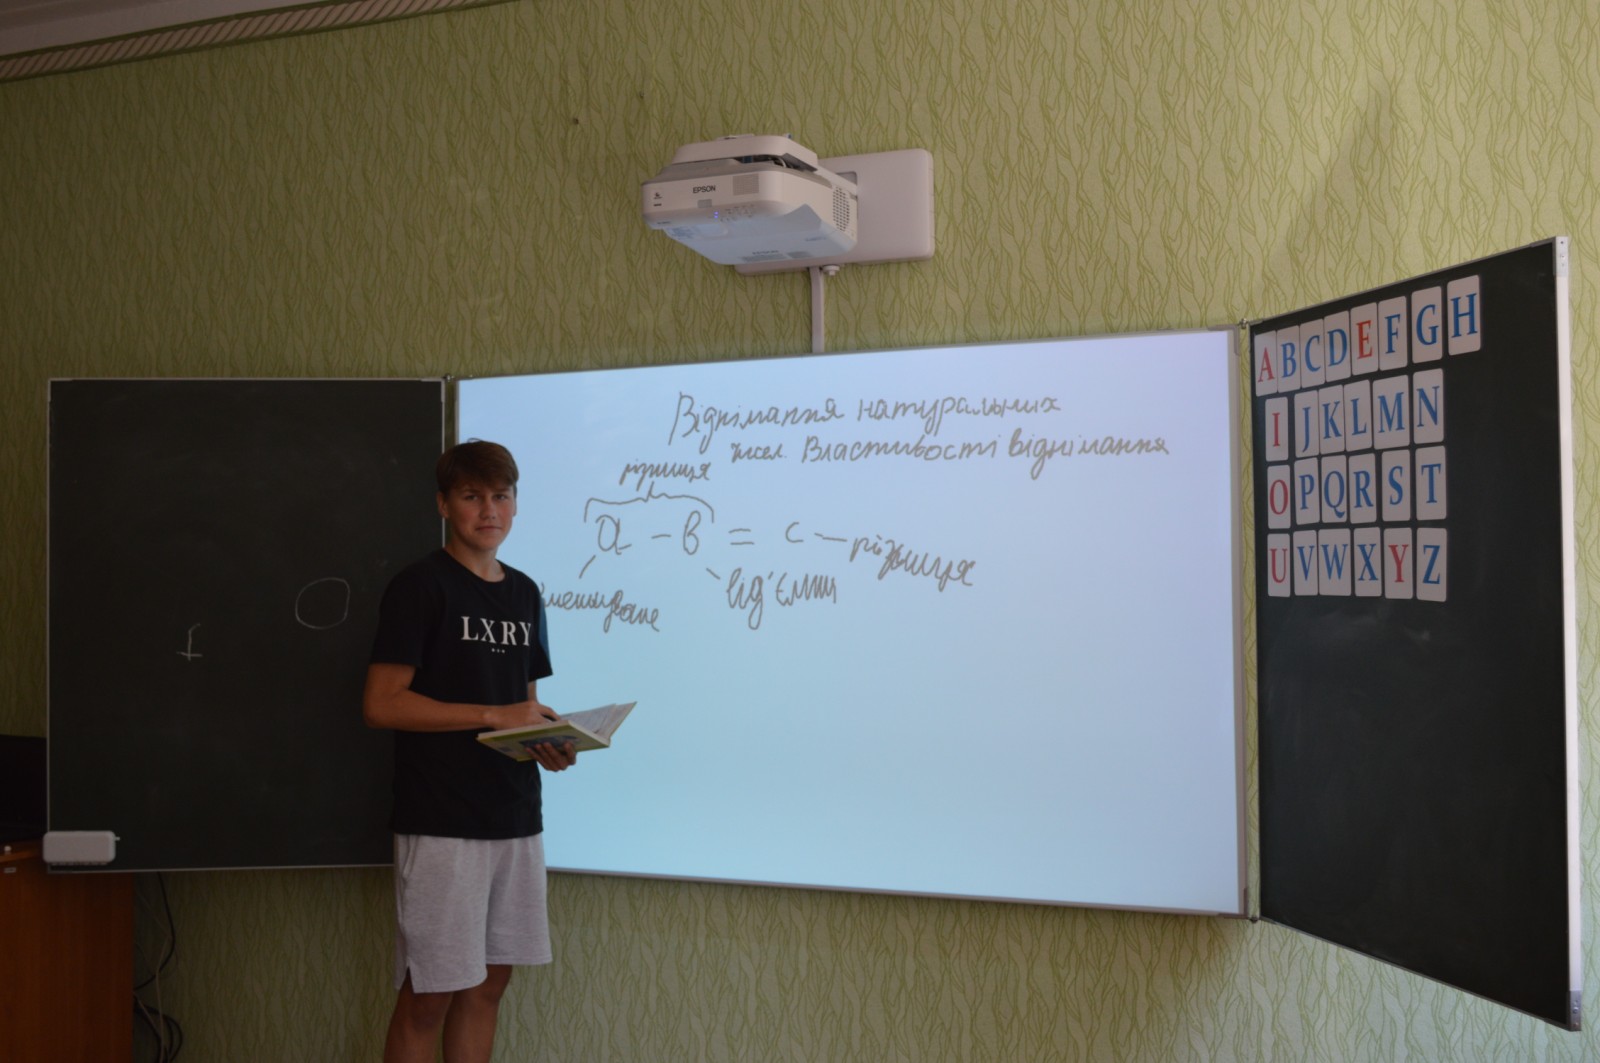 EPSON
Віднімання натуральних
чисел. Властивості віднімання
різниця
a - b = c — різниця
від'ємник
зменшуване
LXRY
A B C D E F G H
I J K L M N
O P Q R S T
U V W X Y Z